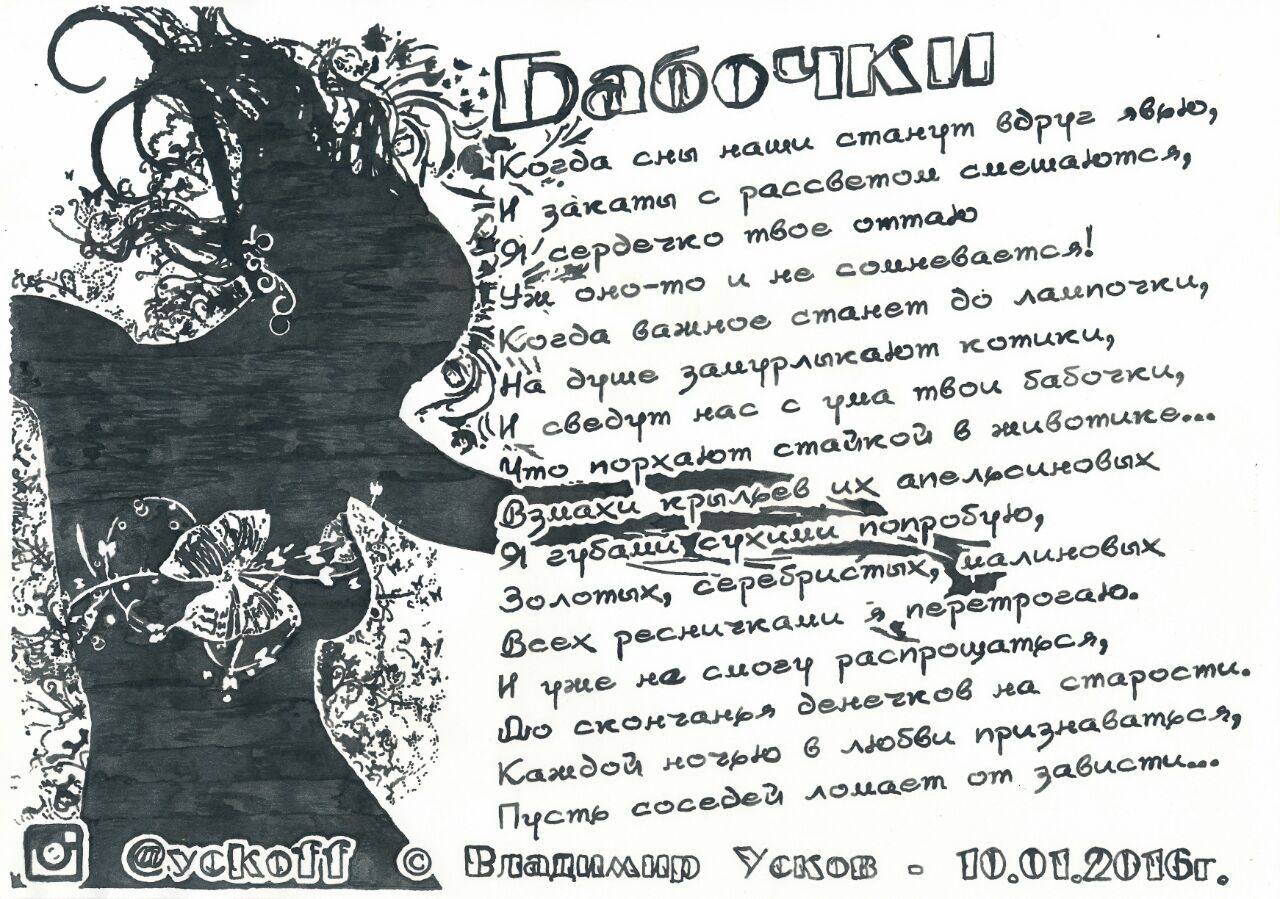 Бабочки
Когда сны наши станут вдруг явью,
И закаты с рассветом смешаются,
Я сердечко твое оттаю
Уж оно-то и не сомневается!
Когда важное станет до лампочки,
На душе замурлыкают котики,
И сведут нас с ума твои бабочки,
Что порхают стайкой в животике...
Взмахи крыльев их апельсиновых
Я губами сухими попробую,
Золотых, серебристых, малиновых
Всех ресничками я перетрогаю.
И уже не смогу распрощаться,
До скончанья денечков на старости.
Каждой ночью в любви признаваться,
Пусть соседей ломает от зависти...
@yckoff © Владимир Усков - 10.01.2016г.